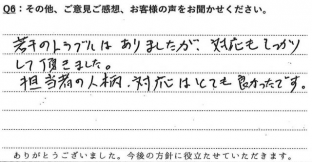 Q6：その他、ご意見ご感想、お客様の声をお聞かせください。
若干のトラブルはありましたが、対応もしっかり
して頂きました。
担当者の人柄、対応はとても良かったです。
ありがとうございました。今後の方針に役立たせていただきます。